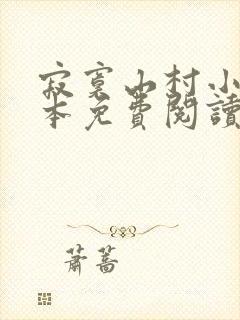 寂寞山村小
本免費閱讀
蕭蒿